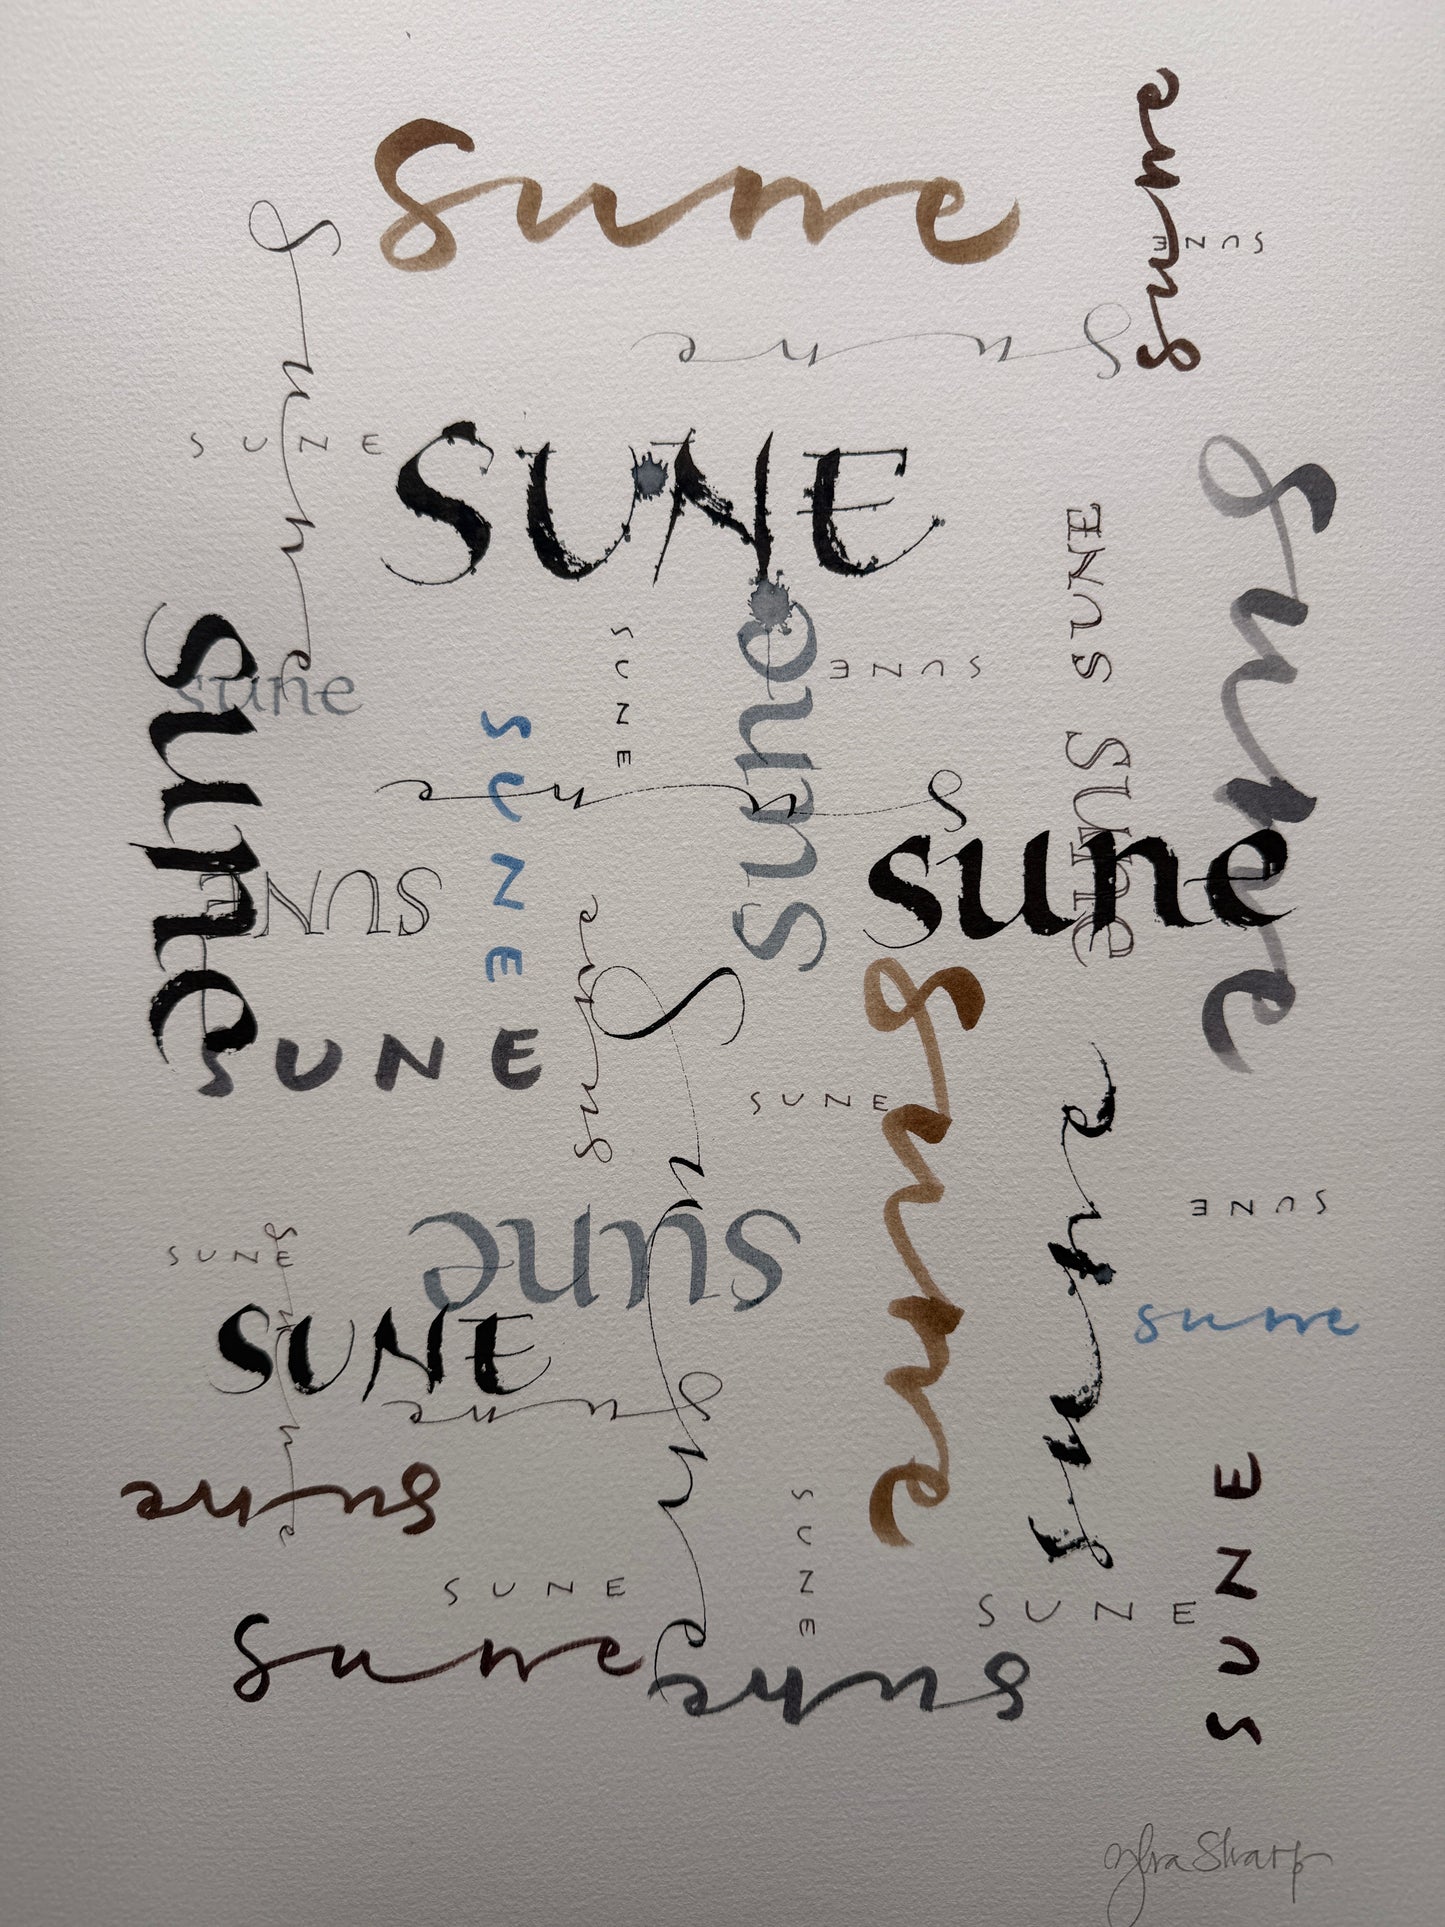 sune
sune
SUNE
sune
sune
SUNE
SUNE
sune
SUNE
SUNE
SUNE
sune
sune
sune
SUNE
sune
sune
sune
SUNE
sune
sune
sune
SUNE
SUNE
sune
SUNE
sune
SUNE
sune
SUNE
sune
sune
sune
SUNE
SUNE
SUNE
SUNE
sune
sune
Ylva Skarp